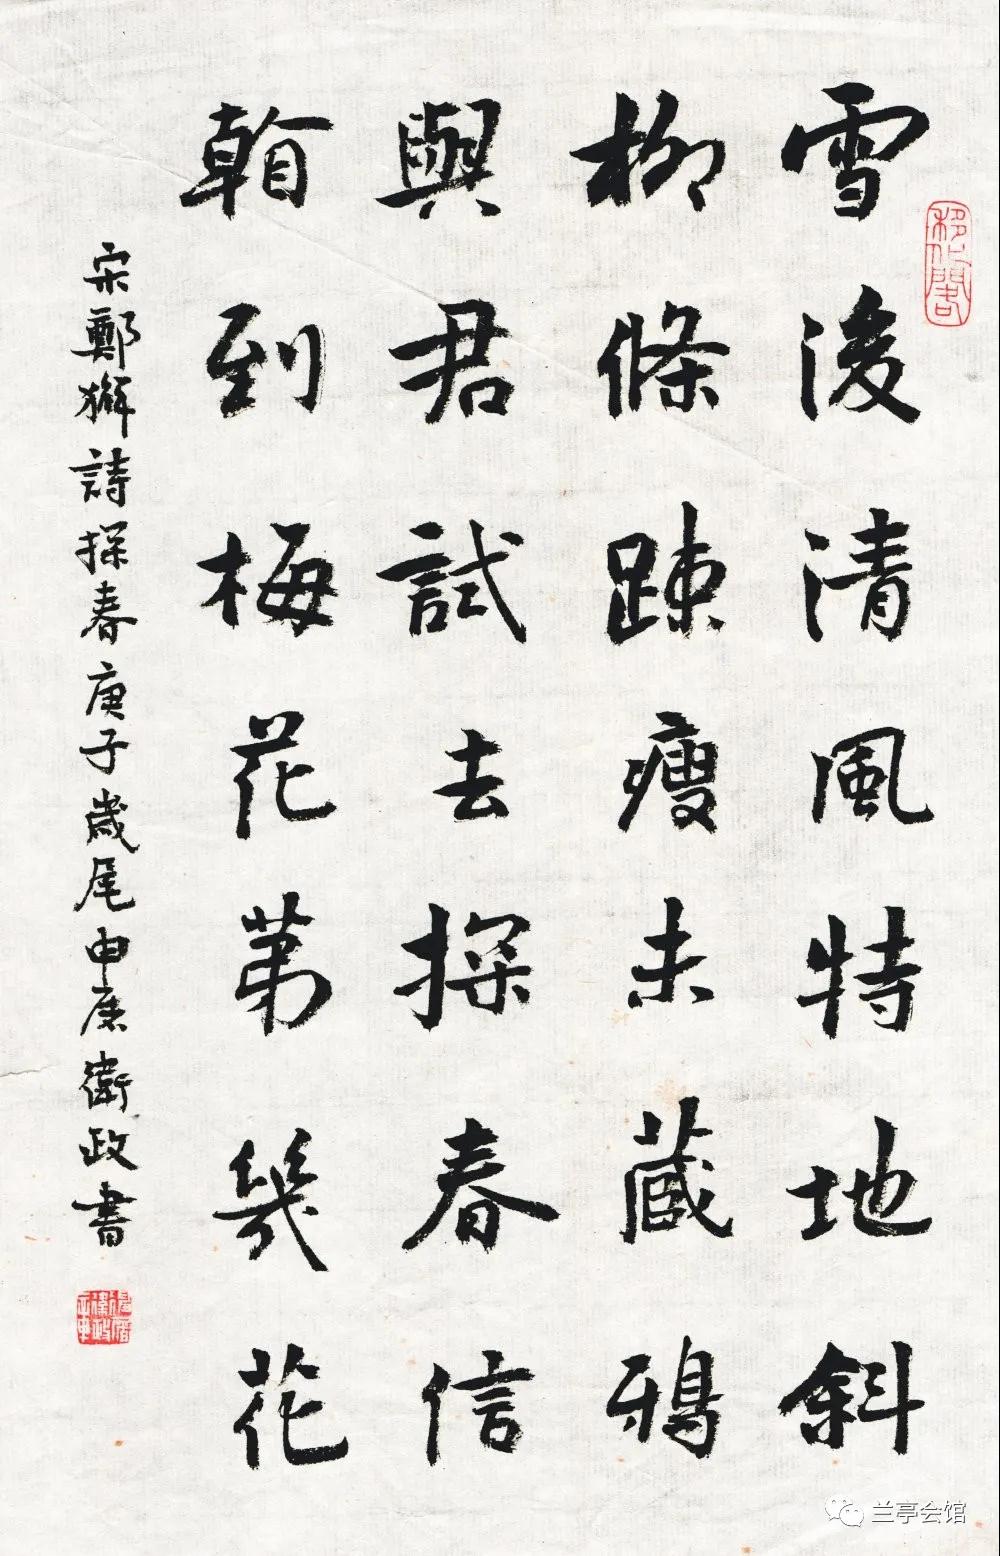 雪後清風特地斜
柳條踈瘦未蔵鴉
與君試去探春信
看到梅花第幾花
宋鄭獬詩探春庚子歲尾申屠衛政書
兰亭会馆